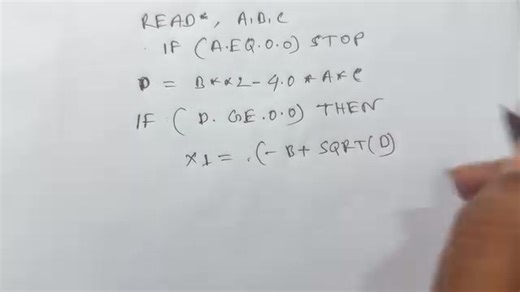 READ*, A,B,C
IF (A.EQ.0.0) STOP
D = B**2-4.0*A*C
IF ( D. GE.0.0) THEN
X1 = .(-B+ SQRT(D)